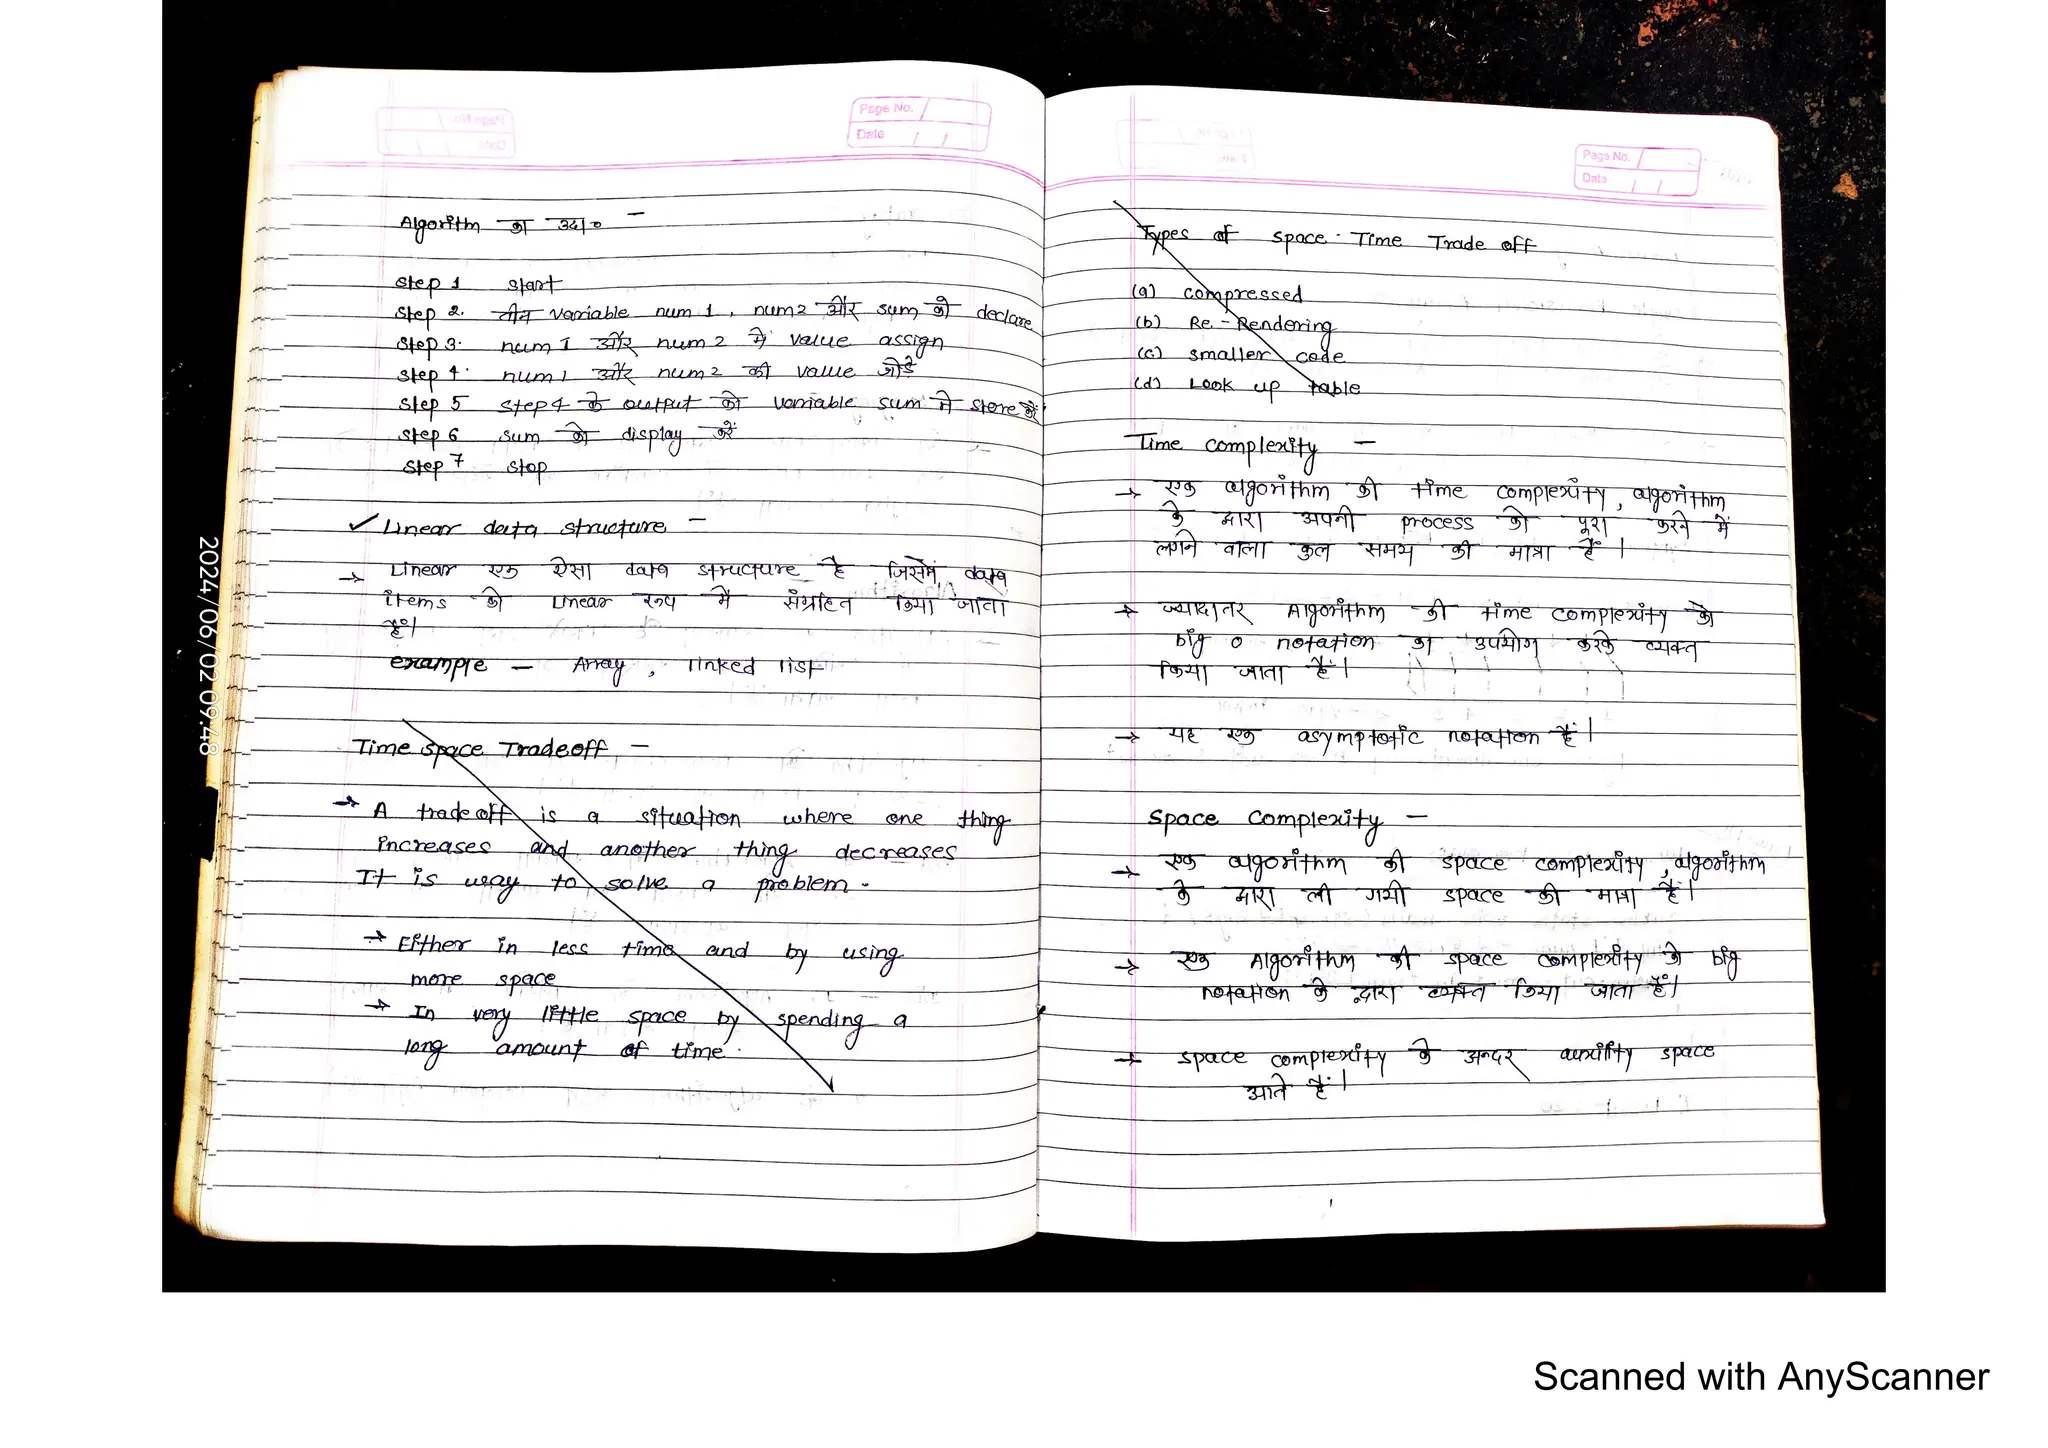 Page No.
Date
Algorithm का उदा० -
Step 1 Start
Step 2. तीन variable num 1, num2 और sum को declare
Step 3. num 1 और num 2 में value assign
Step 4. num1 और num2 की value जोडें
Step 5 Step4 के output को variable sum में store करें
Step 6 sum को display करें
Step 7 Stop
✓ Linear data structure -
→ Linear एक ऐसा data structure है जिसमें data
items को Linear रूप में संग्रहित किया जाता
हैं।
example - Array, linked list
Time space Tradeoff -
→ A tradeoff is a situation where one thing
increases and another thing decreases
It is way to solve a problem.
→ Either in less time and by using
more space
→ In very little space by spending a
long amount of time.
Page No.
Date
Types of space. Time Trade off
(a) compressed
(b) Re-Rendering
(c) smaller code
(d) Look up table
Time complexity -
→ एक algorithm की time complexity, algorithm
के द्वारा अपनी process को पूरा करने में
लगने वाला कुल समय की मात्रा हैं।
→ ज्यादातर Algorithm की time complexity को
big o notation का उपयोग करके व्यक्त
किया जाता हैं।
→ यह एक asymptotic notation हैं।
Space Complexity -
→ एक algorithm की space complexity, algorithm
के द्वारा ली गयी space की मात्रा हैं।
→ एक Algorithm की space complexity को big
notation के द्वारा व्यक्त किया जाता हैं।
→ space complexity के अन्दर auxility space
आते हैं।
2024/06/02 09:48
Scanned with AnyScanner